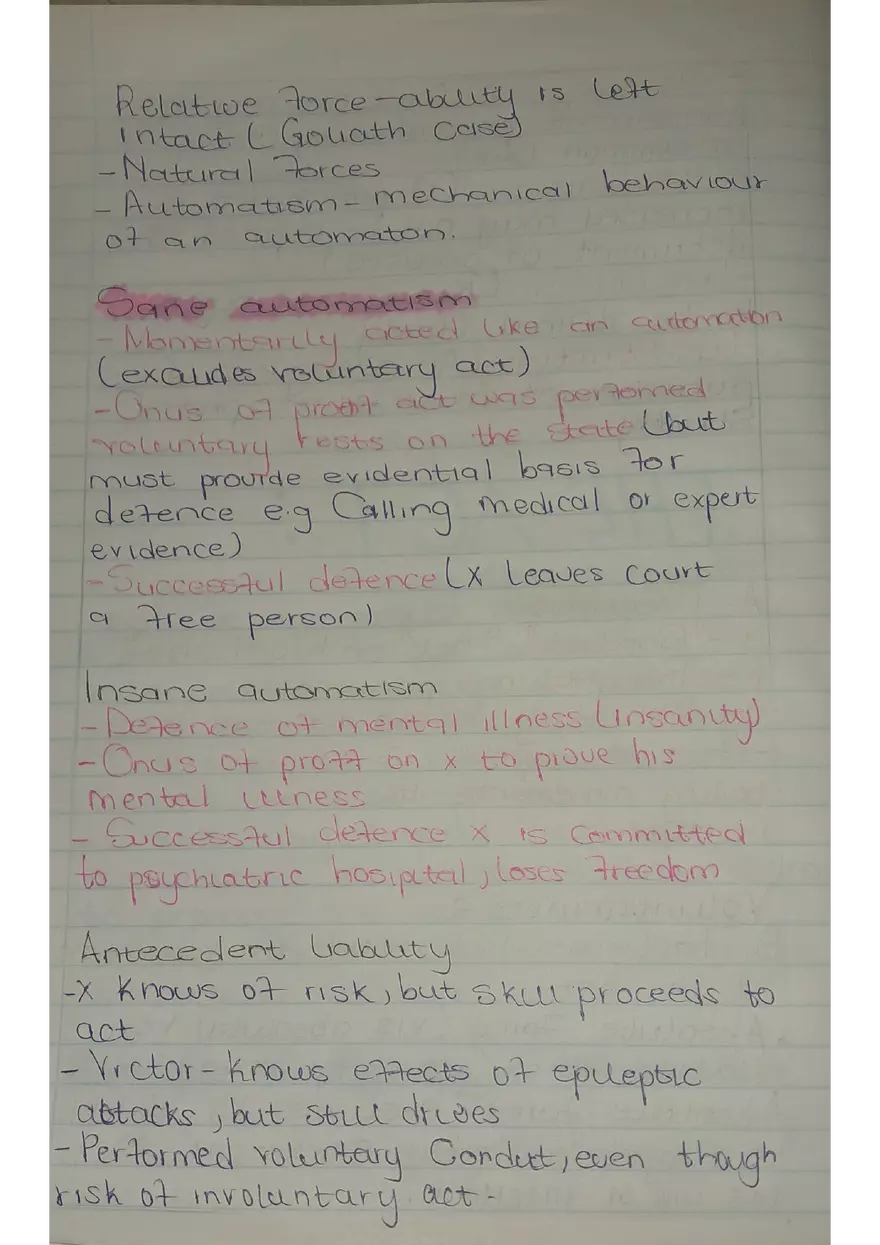 Relative force-ability is left
intact (Goliath case)
- Natural forces
- Automatism - mechanical behaviour
of an automaton.
Sane automatism
- Momentarily acted like an automation
(exaudes voluntary act)
- Onus of prooff act was perfomed
voluntary rests on the state (but
must provide evidential basis for
defence e.g Calling medical or expert
evidence)
- Successful defence (x leaves court
a free person)
Insane automatism
- Defence of mental illness (insanity)
- Onus of proff on x to prove his
mental illness
- Successful defence x is committed
to psychiatric hosiptal, loses freedom
Antecedent liability
- X knows of risk, but skill proceeds to
act
- Victor - knows effects of epileptic
attacks, but still drives
- Performed voluntary Conduct, even though
risk of involuntary act -